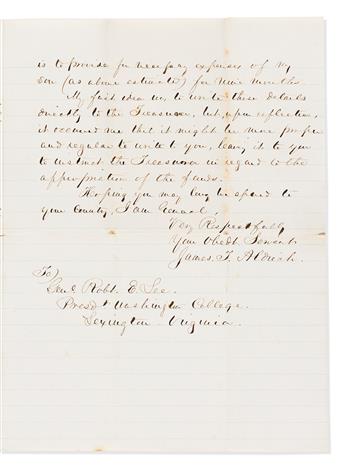 is to provide for necessary expenses of my
son (as above estimate) for nine months.
My first idea was to write these details
directly to the Treasurer, but, upon reflection,
it occurred me that it might be more proper
and regular to write to you, leaving it to you
to instruct the Treasurer in regard to the
appropriation of the funds.
Hoping you may long be spared to
your Country, I am General,
Very Respectfully
Your Obedt. Servant
James. T. Aldrich.
To)
Genl Robt. E. Lee.
Presdt. Washington College.
Lexington Virginia.